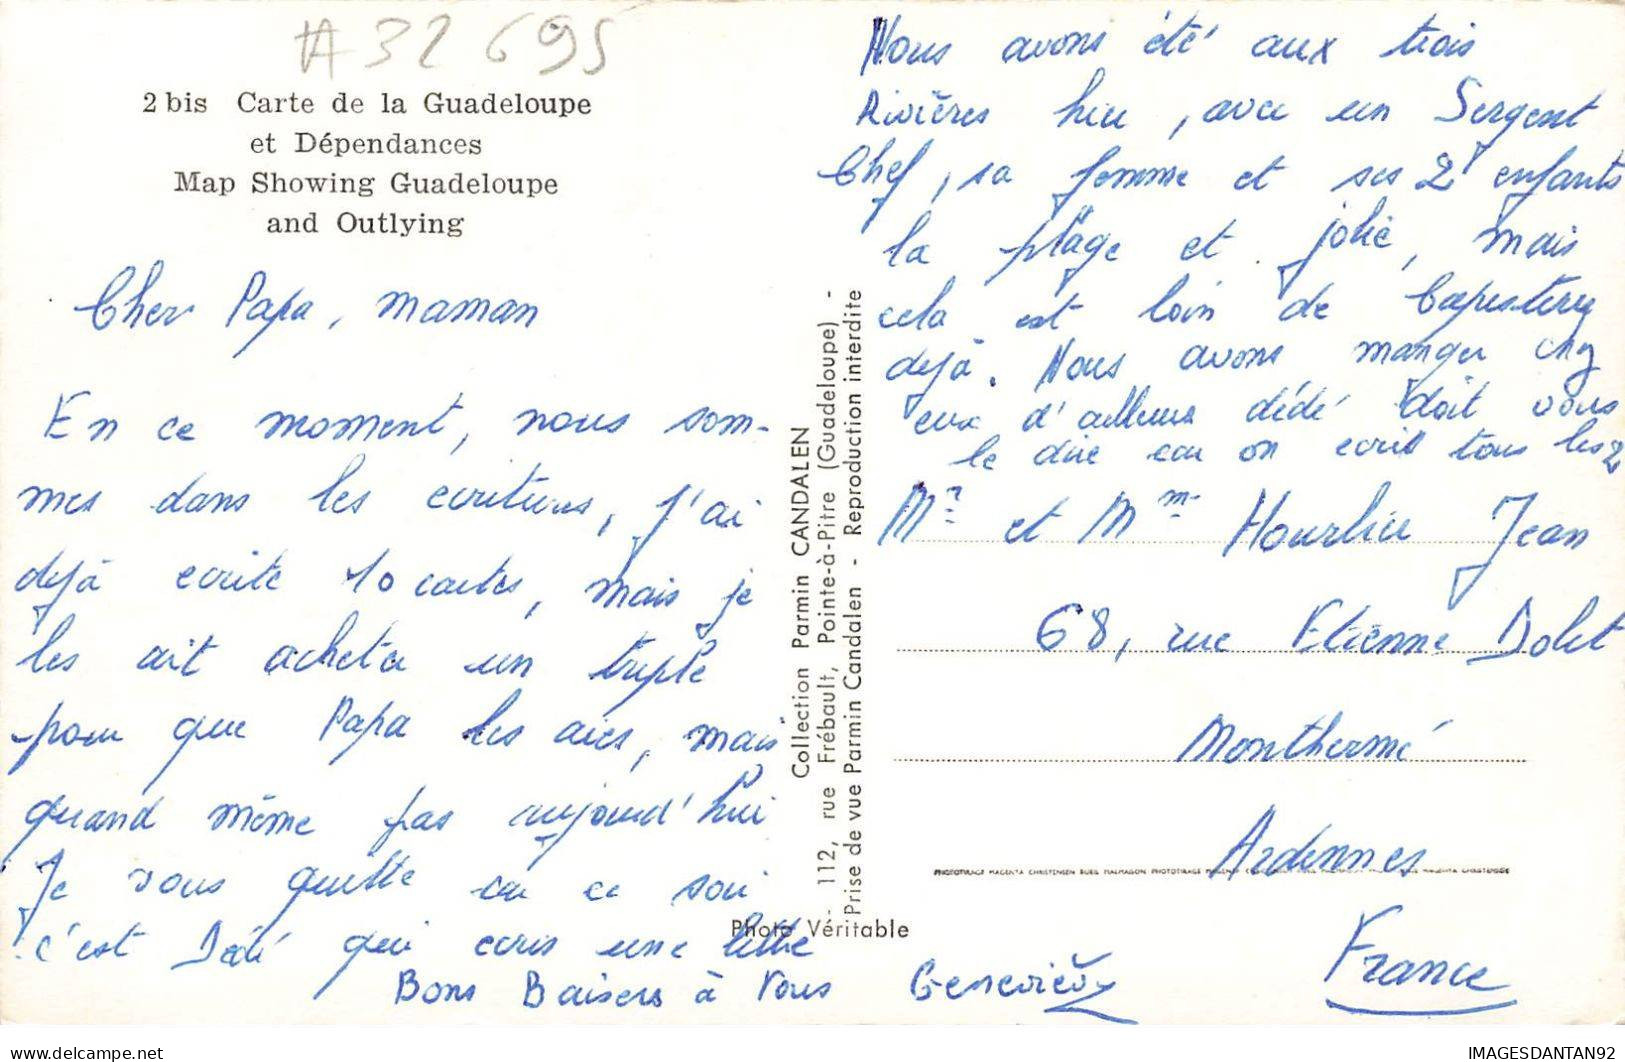 #32695
2 bis Carte de la Guadeloupe
et Dépendances
Map Showing Guadeloupe
and Outlying
Cher Papa, maman
En ce moment, nous som-
mes dans les ecritures, j'ai
dejà ecrite 10 cartes, mais je
les ait acheter en triple
pour que Papa les aies, mais
quand même pas aujourd'hui
Je vous quitte car ce soir
c'est Dédé qui ecris une lettre
Bons Baisers à Vous Geneviève
Collection Parmin CANDALEN
112, rue Frébault, Pointe-à-Pitre (Guadeloupe) -
Prise de vue Parmin Candalen - Reproduction interdite
Photo Véritable
Nous avons été aux trois
Rivières hier, avec un Sergent
Chef, sa femme et ses 2 enfants
la plage et jolie, mais
cela est loin de Capesterre
dejà. Nous avons manger chez
eux d'ailleurs dédé doit vous
le dire car on ecrit tous les 2
Mr et Mme Hourlier Jean
68, rue Etienne Dolet
Monthermé
Ardennes
France
IMAGESDANTAN92
delcampe.net